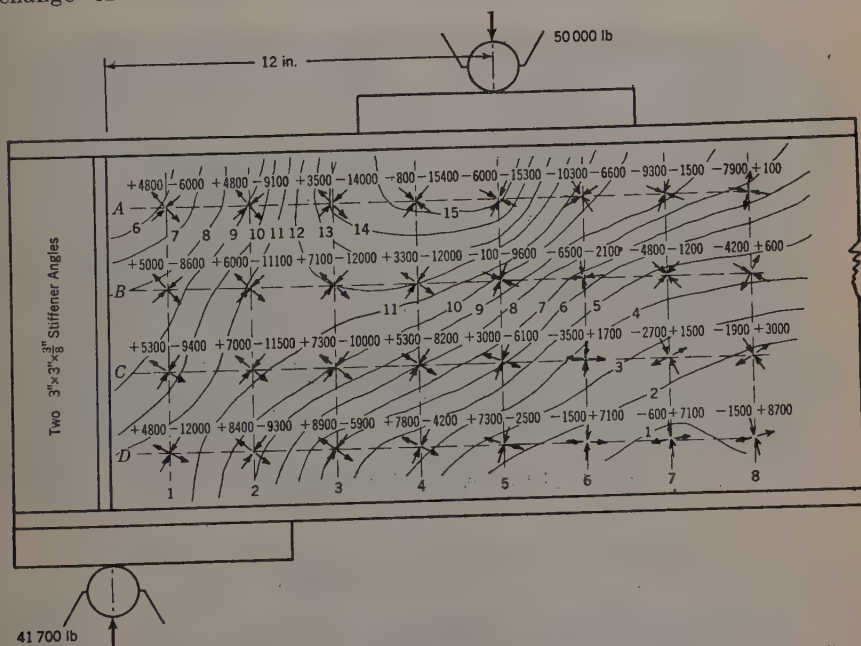 change
50 000 lb
12 in.
+4800 −6000 +4800 −9100 +3500 −14000 −800 −15400 −6000 −15300 −10300 −6600 −9300 −1500 −7900 +100
A
6 7 8 9 10 11 12 13 14 15
+5000 −8600 +6000 −11100 +7100 −12000 +3300 −12000 −100 −9600 −6500 −2100 −4800 −1200 −4200 +600
B
11 10 9 8 7 6 5 4
+5300 −9400 +7000 −11500 +7300 −10000 +5300 −8200 +3000 −6100 −3500 +1700 −2700 +1500 −1900 +3000
C
3
2
+4800 −12000 +8400 −9300 +8900 −5900 +7800 −4200 +7300 −2500 −1500 +7100 −600 +7100 −1500 +8700
D
1
1 2 3 4 5 6 7 8
Two 3"×3"×3/8" Stiffener Angles
41 700 lb